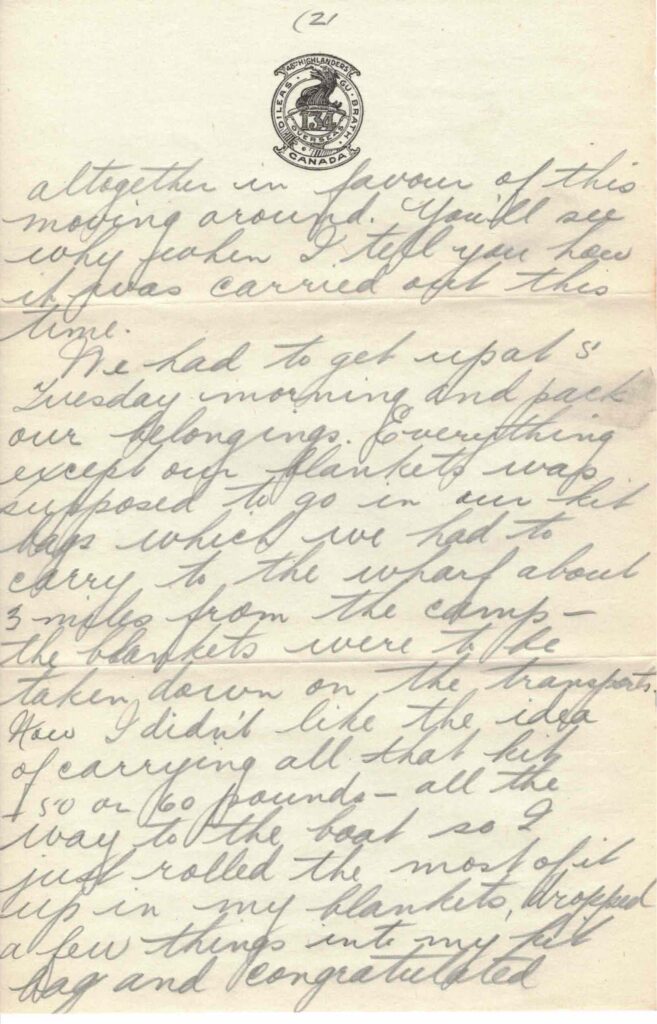 (2)
48TH HIGHLANDERS
DILEAS GU BRATH
134
OVERSEAS
CANADA
altogether in favour of this
moving around. You'll see
why when I tell you how
it was carried out this
time.
We had to get up at 5
Tuesday morning and pack
our belongings. Everything
except our blankets was
supposed to go in our kit
bags which we had to
carry to the wharf about
3 miles from the camp –
the blankets were to be
taken down on the transports.
Now I didn't like the idea
of carrying all that kit
– 50 or 60 pounds – all the
way to the boat so I
just rolled the most of it
up in my blankets, dropped
a few things into my kit
bag and congratulated